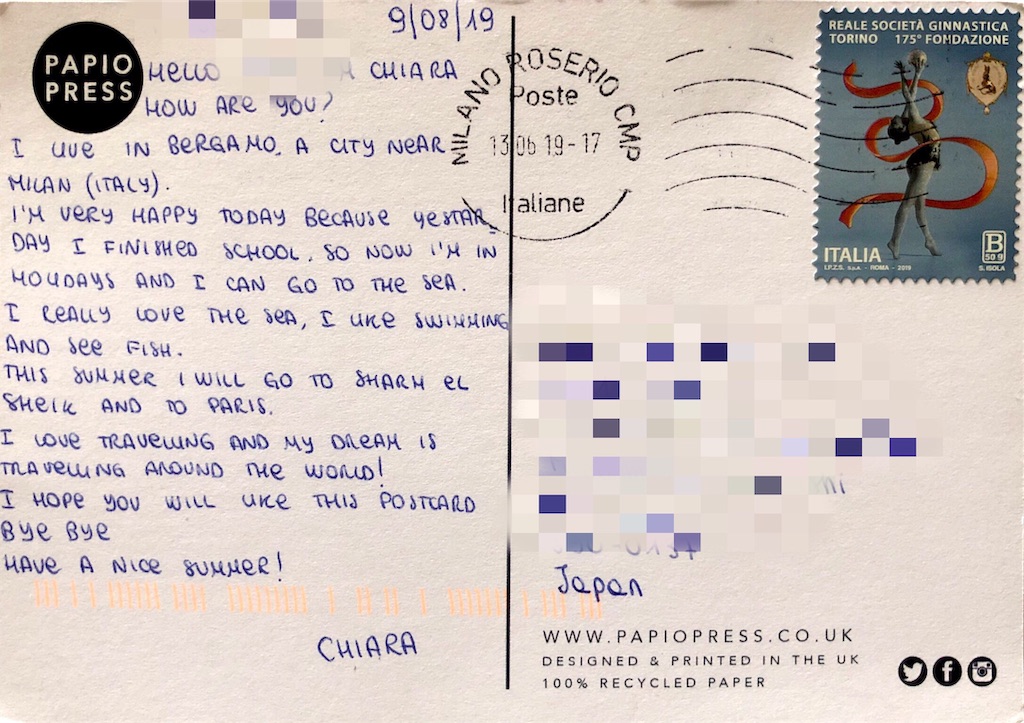 9/08/19
PAPIO
PRESS
HELLO CHIARA
HOW ARE YOU?
I LIVE IN BERGAMO, A CITY NEAR
MILAN (ITALY).
I'M VERY HAPPY TODAY BECAUSE YESTAR_
DAY I FINISHED SCHOOL. SO NOW I'M IN
HOLIDAYS AND I CAN GO TO THE SEA.
I REALLY LOVE THE SEA, I LIKE SWIMMING
AND SEE FISH.
THIS SUMMER I WILL GO TO SHARM EL
SHEIK AND TO PARIS.
I LOVE TRAVELLING AND MY DREAM IS
TRAVELLING AROUND THE WORLD!
I HOPE YOU WILL LIKE THIS POSTCARD
BYE BYE
HAVE A NICE SUMMER!
CHIARA
MILANO ROSERIO CMP
Poste
13 06 19-17
Italiane
REALE SOCIETÀ GINNASTICA
TORINO 175° FONDAZIONE
ITALIA
I.P.Z.S. S.p.A. - ROMA - 2019
B
50 g
S. ISOLA
Japan
WWW.PAPIOPRESS.CO.UK
DESIGNED & PRINTED IN THE UK
100% RECYCLED PAPER